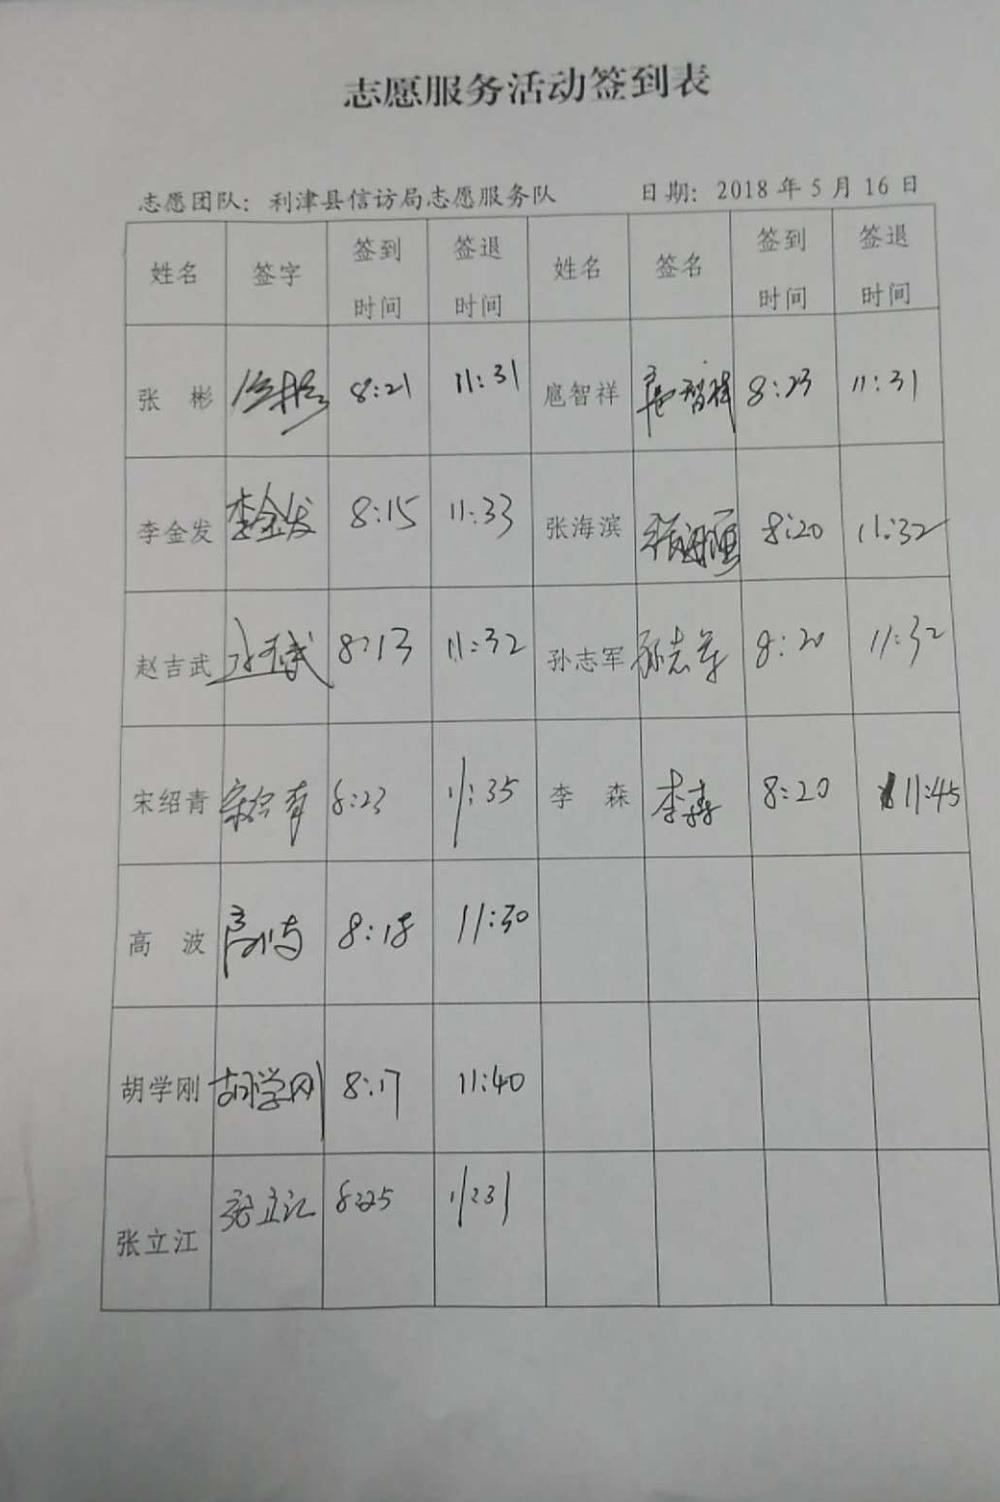 志愿服务活动签到表
志愿团队：利津县信访局志愿服务队 日期：2018年5月16日
姓名 签字 签到时间 签退时间 姓名 签名 签到时间 签退时间
张彬 8:21 11:31 扈智祥 扈智祥 8:23 11:31
李金发 李金发 8:15 11:33 张海滨 张海滨 8:20 11:32
赵吉武 8:13 11:32 孙志军 孙志军 8:20 11:32
宋绍青 宋绍青 8:23 11:35 李森 李森 8:20 11:45
高波 高波 8:18 11:30
胡学刚 胡学刚 8:17 11:40
张立江 张立江 8:25 11:31